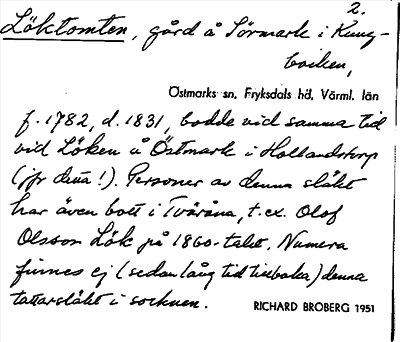 2.
Löktomten, gård å Sörmark i Kung-
backen,
Östmarks sn, Fryksdals hd, Värml. län
f. 1782, d. 1831, bodde vid samma tid
vid Löken å Östmark i Hollandstorp
(jfr detta!). Personer av denna släkt
har även bott i Tväråna, t.ex. Olof
Olsson Lök på 1860-talet. Numera
finnes ej (sedan lång tid tillbaka) denna
tattarsläkt i socknen.
RICHARD BROBERG 1951